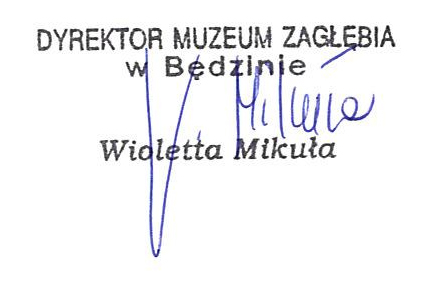 DYREKTOR MUZEUM ZAGŁĘBIA
w Będzinie
Wioletta Mikuła